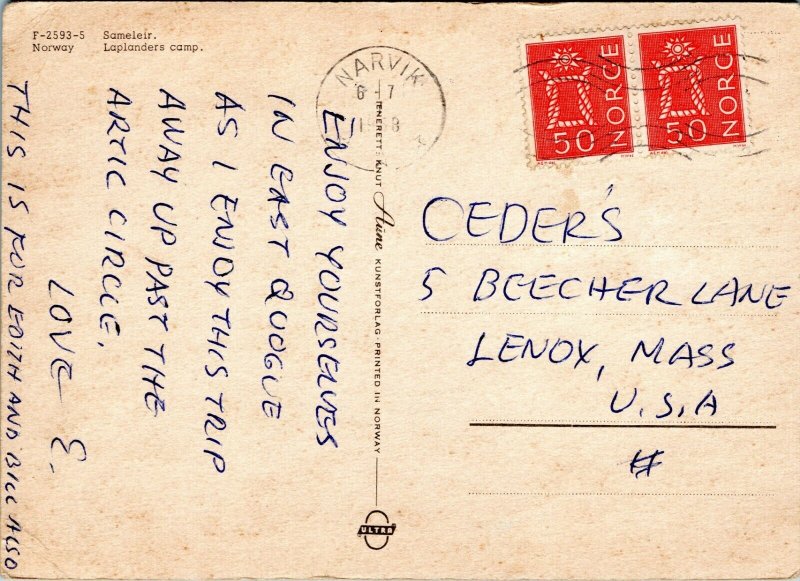 F-2593-5 Sameleir.
Norway Laplanders camp.
NARVIK
6-7
50 NORGE
50 NORGE
ENJOY YOURSELVES
IN EAST QUOGUE
AS I ENJOY THIS TRIP
AWAY UP PAST THE
ARTIC CIRCLE.
LOVE E.
THIS IS FOR EDITH AND BILL ALSO
ENERETT: KNUT Aune KUNSTFORLAG-PRINTED IN NORWAY
OEDER'S
5 BEECHER LANE
LENOX, MASS
U.S.A
#
ULTRA